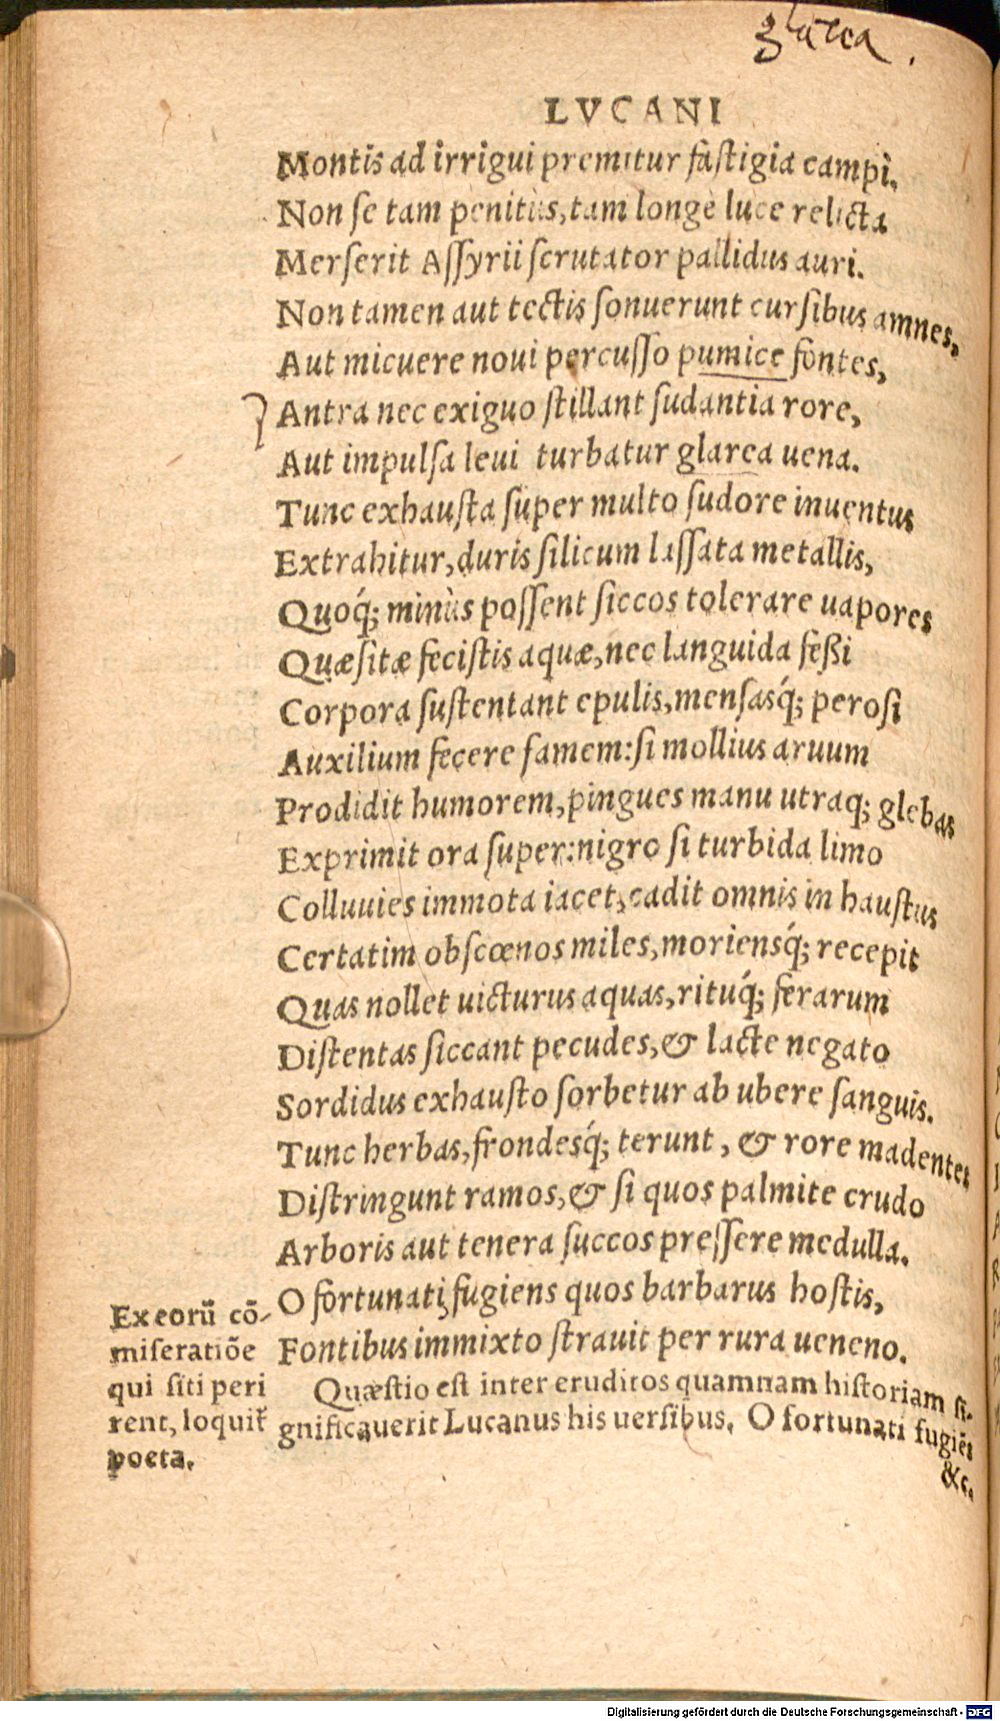 glarea.
LVCANI
Montis ad irrigui premitur fastigia campi.
Non se tam penitùs, tam longè luce relicta
Merserit Assyrii scrutator pallidus auri.
Non tamen aut tectis sonuerunt cursibus amnes,
Aut micuere noui percusso pumice fontes,
Antra nec exiguo stillant sudantia rore,
Aut impulsa leui turbatur glarea uena.
Tunc exhausta super multo sudore inuentus
Extrahitur, duris silicum lassata metallis,
Quoq́; minùs possent siccos tolerare uapores
Quæsitæ fecistis aquæ, nec languida feßi
Corpora sustentant epulis, mensasq́; perosi
Auxilium fecere famem: si mollius aruum
Prodidit humorem, pingues manu utraq; glebas
Exprimit ora super: nigro si turbida limo
Colluuies immota iacet, cadit omnis in haustus
Certatim obscœnos miles, moriensq́; recepit
Quas nollet uicturus aquas, rituq́; ferarum
Distentas siccant pecudes, & lacte negato
Sordidus exhausto sorbetur ab ubere sanguis.
Tunc herbas, frondesq́; terunt, & rore madentes
Distringunt ramos, & si quos palmite crudo
Arboris aut tenera succos pressere medulla.
O fortunati, fugiens quos barbarus hostis,
Fontibus immixto strauit per rura ueneno.
Ex eorũ cõ-
miseratiõe
qui siti peri
rent, loquit̃
poeta.
Quæstio est inter eruditos quamnam historiam si-
gnificauerit Lucanus his uersibus. O fortunati fugiẽs
&c.
Digitalisierung gefördert durch die Deutsche Forschungsgemeinschaft - DFG